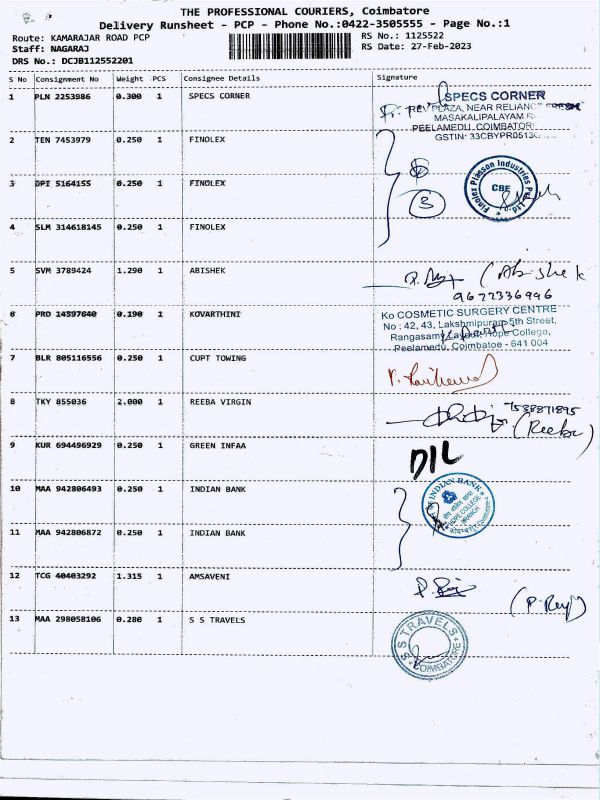 THE PROFESSIONAL COURIERS, Coimbatore
Delivery Runsheet - PCP - Phone No.:0422-3505555 - Page No.:1
Route: KAMARAJAR ROAD PCP
RS No.: 1125522
Staff: NAGARAJ
RS Date: 27-Feb-2023
DRS No.: DCJB112552201
S No Consignment No Weight PCS Consignee Details Signature
1 PLN 2253986 0.300 1 SPECS CORNER
SPECS CORNER
PLAZA, NEAR RELIANCE
MASAKALIPALAYAM
PEELAMEDU, COIMBATOR
GSTIN: 33CBYPR0513
2 TEN 7453979 0.250 1 FINOLEX
3 DPI 5164155 0.250 1 FINOLEX
3
Finolex Plasson Industries Pvt. Ltd
CBE
4 SLM 314618145 0.250 1 FINOLEX
5 SVM 3789424 1.290 1 ABISHEK
(Abishek
9677336996
6 PRO 14597640 0.190 1 KOVARTHINI
Ko COSMETIC SURGERY CENTRE
No : 42, 43, Lakshmipuram 5th Street,
Rangasamy Layout, Hope College,
Peelamedu, Coimbatoe - 641 004
7 BLR 805116556 0.250 1 CUPT TOWING
8 TKY 855036 2.000 1 REEBA VIRGIN
7538871895
(Reeba)
9 KUR 694496929 0.250 1 GREEN INFAA
D/L
10 MAA 942806493 0.250 1 INDIAN BANK
INDIAN BANK
HOPE COLLEGE
BRANCH
11 MAA 942806872 0.250 1 INDIAN BANK
12 TCG 40403292 1.315 1 AMSAVENI
13 MAA 298058106 0.280 1 S S TRAVELS
S S TRAVELS
COIMBATORE